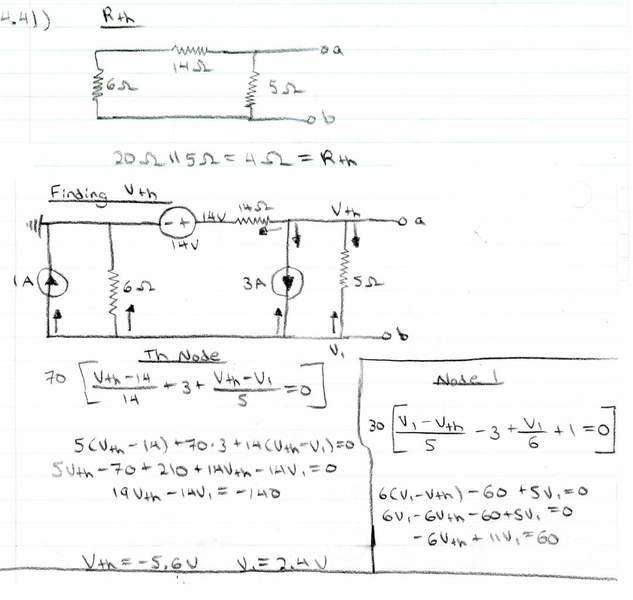 4.41)
Rth
14Ω
6Ω
5Ω
a
b
20Ω || 5Ω = 4Ω = Rth
Finding Vth
- +
14V
14V
14Ω
Vth
a
1A
6Ω
3A
5Ω
b
V₁
Th Node
70 [ (Vth-14)/14 + 3 + (Vth-V₁)/5 = 0 ]
5(Vth-14) + 70·3 + 14(Vth-V₁) = 0
5Vth - 70 + 210 + 14Vth - 14V₁ = 0
19Vth - 14V₁ = -140
Vth = -5.6V V₁ = 2.4V
Node 1
30 [ (V₁-Vth)/5 - 3 + V₁/6 + 1 = 0 ]
6(V₁-Vth) - 60 + 5V₁ = 0
6V₁ - 6Vth - 60 + 5V₁ = 0
-6Vth + 11V₁ = 60